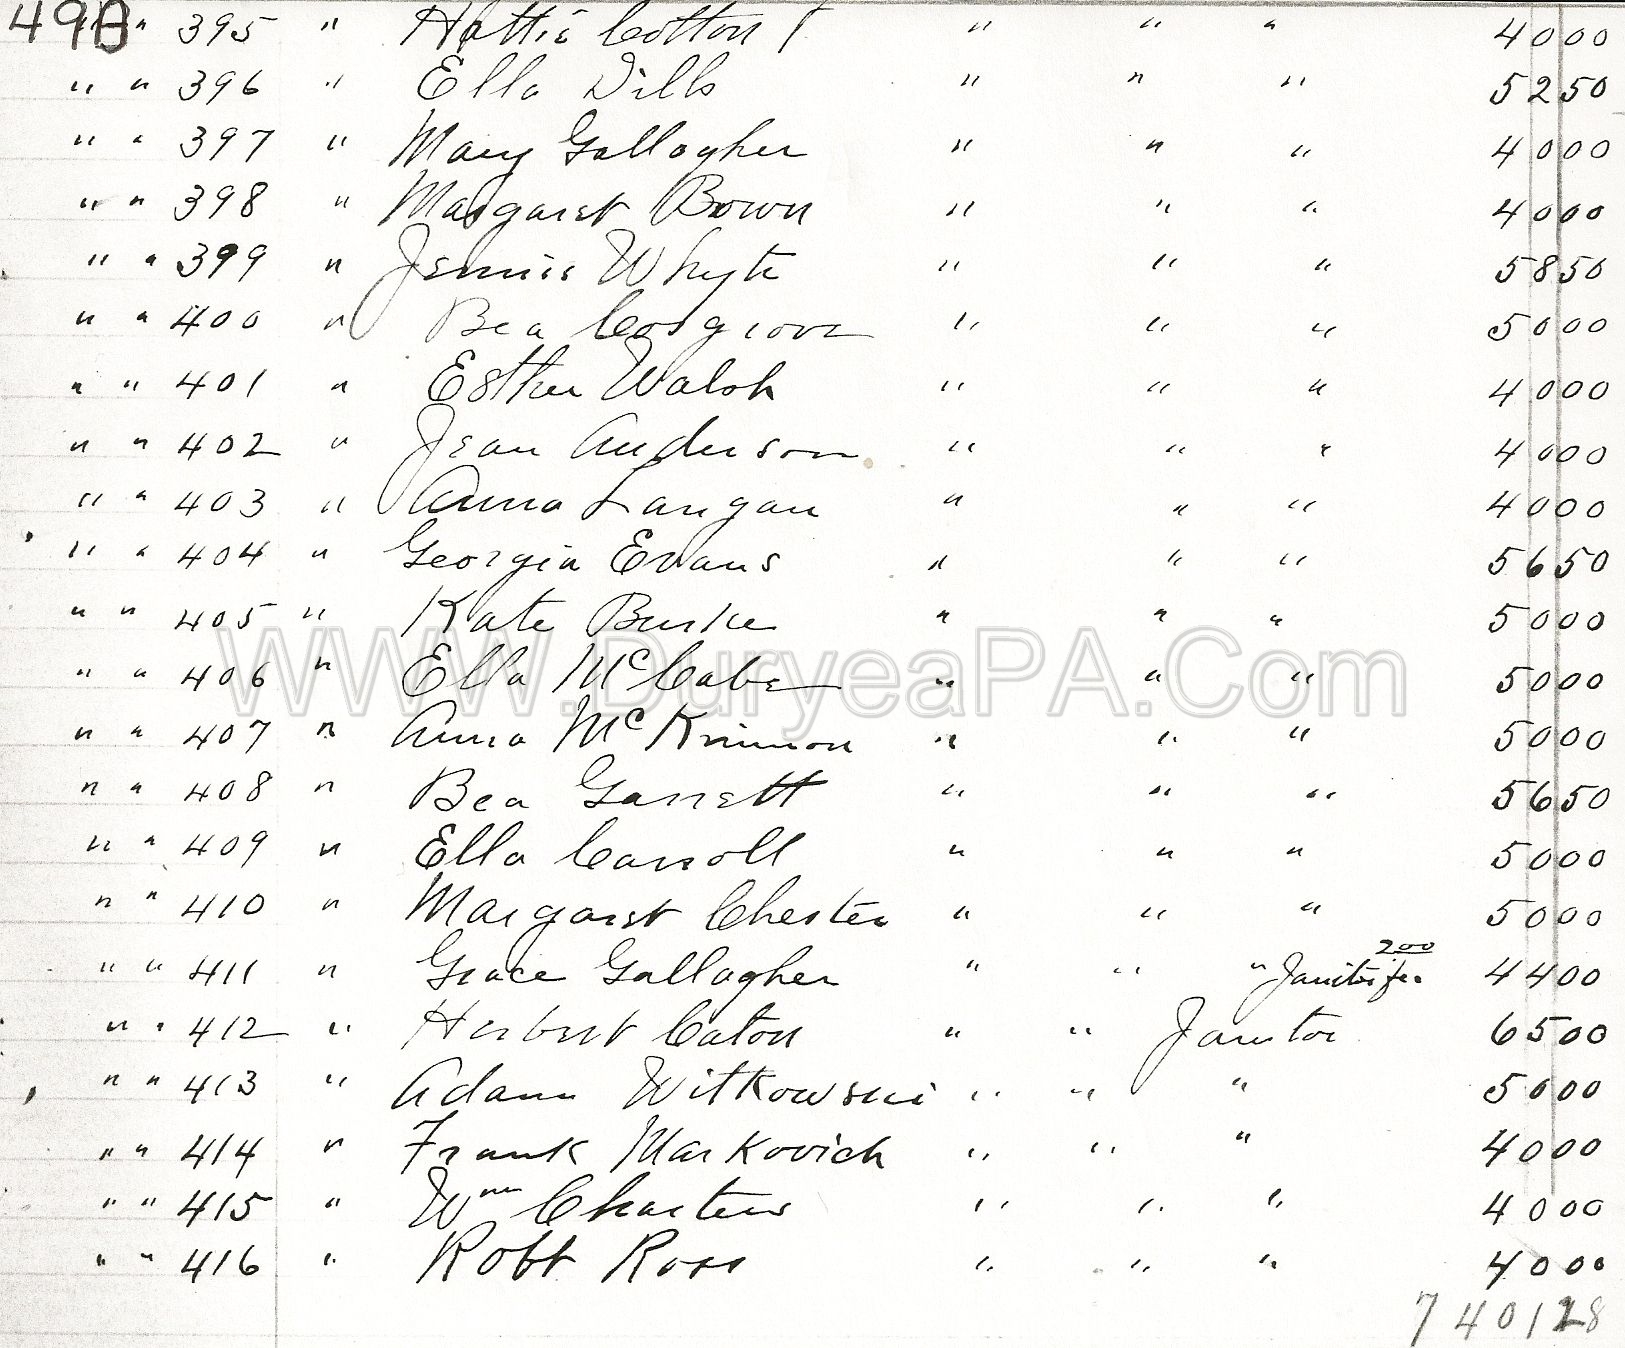 490 " 395 " Hattie Cotton " " " 40 00
" " 396 " Ella Dills " " " 52 50
" " 397 " Mary Gallagher " " " 40 00
" " 398 " Margaret Bown " " " 40 00
" " 399 " Jennie Whyte " " " 58 50
" " 400 " Bea Cosgrove " " " 50 00
" " 401 " Esther Walsh " " " 40 00
" " 402 " Jean Anderson " " " 40 00
" " 403 " Anna Langan " " " 40 00
" " 404 " Georgia Evans " " " 56 50
" " 405 " Kate Burke " " " 50 00
WWW.DuryeaPA.Com
" " 406 " Ella McCabe " " " 50 00
" " 407 " Anna McKinnon " " " 50 00
" " 408 " Bea Garrett " " " 56 50
" " 409 " Ella Carroll " " " 50 00
" " 410 " Margaret Chester " " " 50 00
" " 411 " Grace Gallagher " " " Janitor fee 200 44 00
" " 412 " Herbert Eaton " " Janitor 65 00
" " 413 " Adam Witkowski " " " 50 00
" " 414 " Frank Markovich " " " 40 00
" " 415 " Wm Charters " " " 40 00
" " 416 " Robt Ross " " " 40 00
7401 28